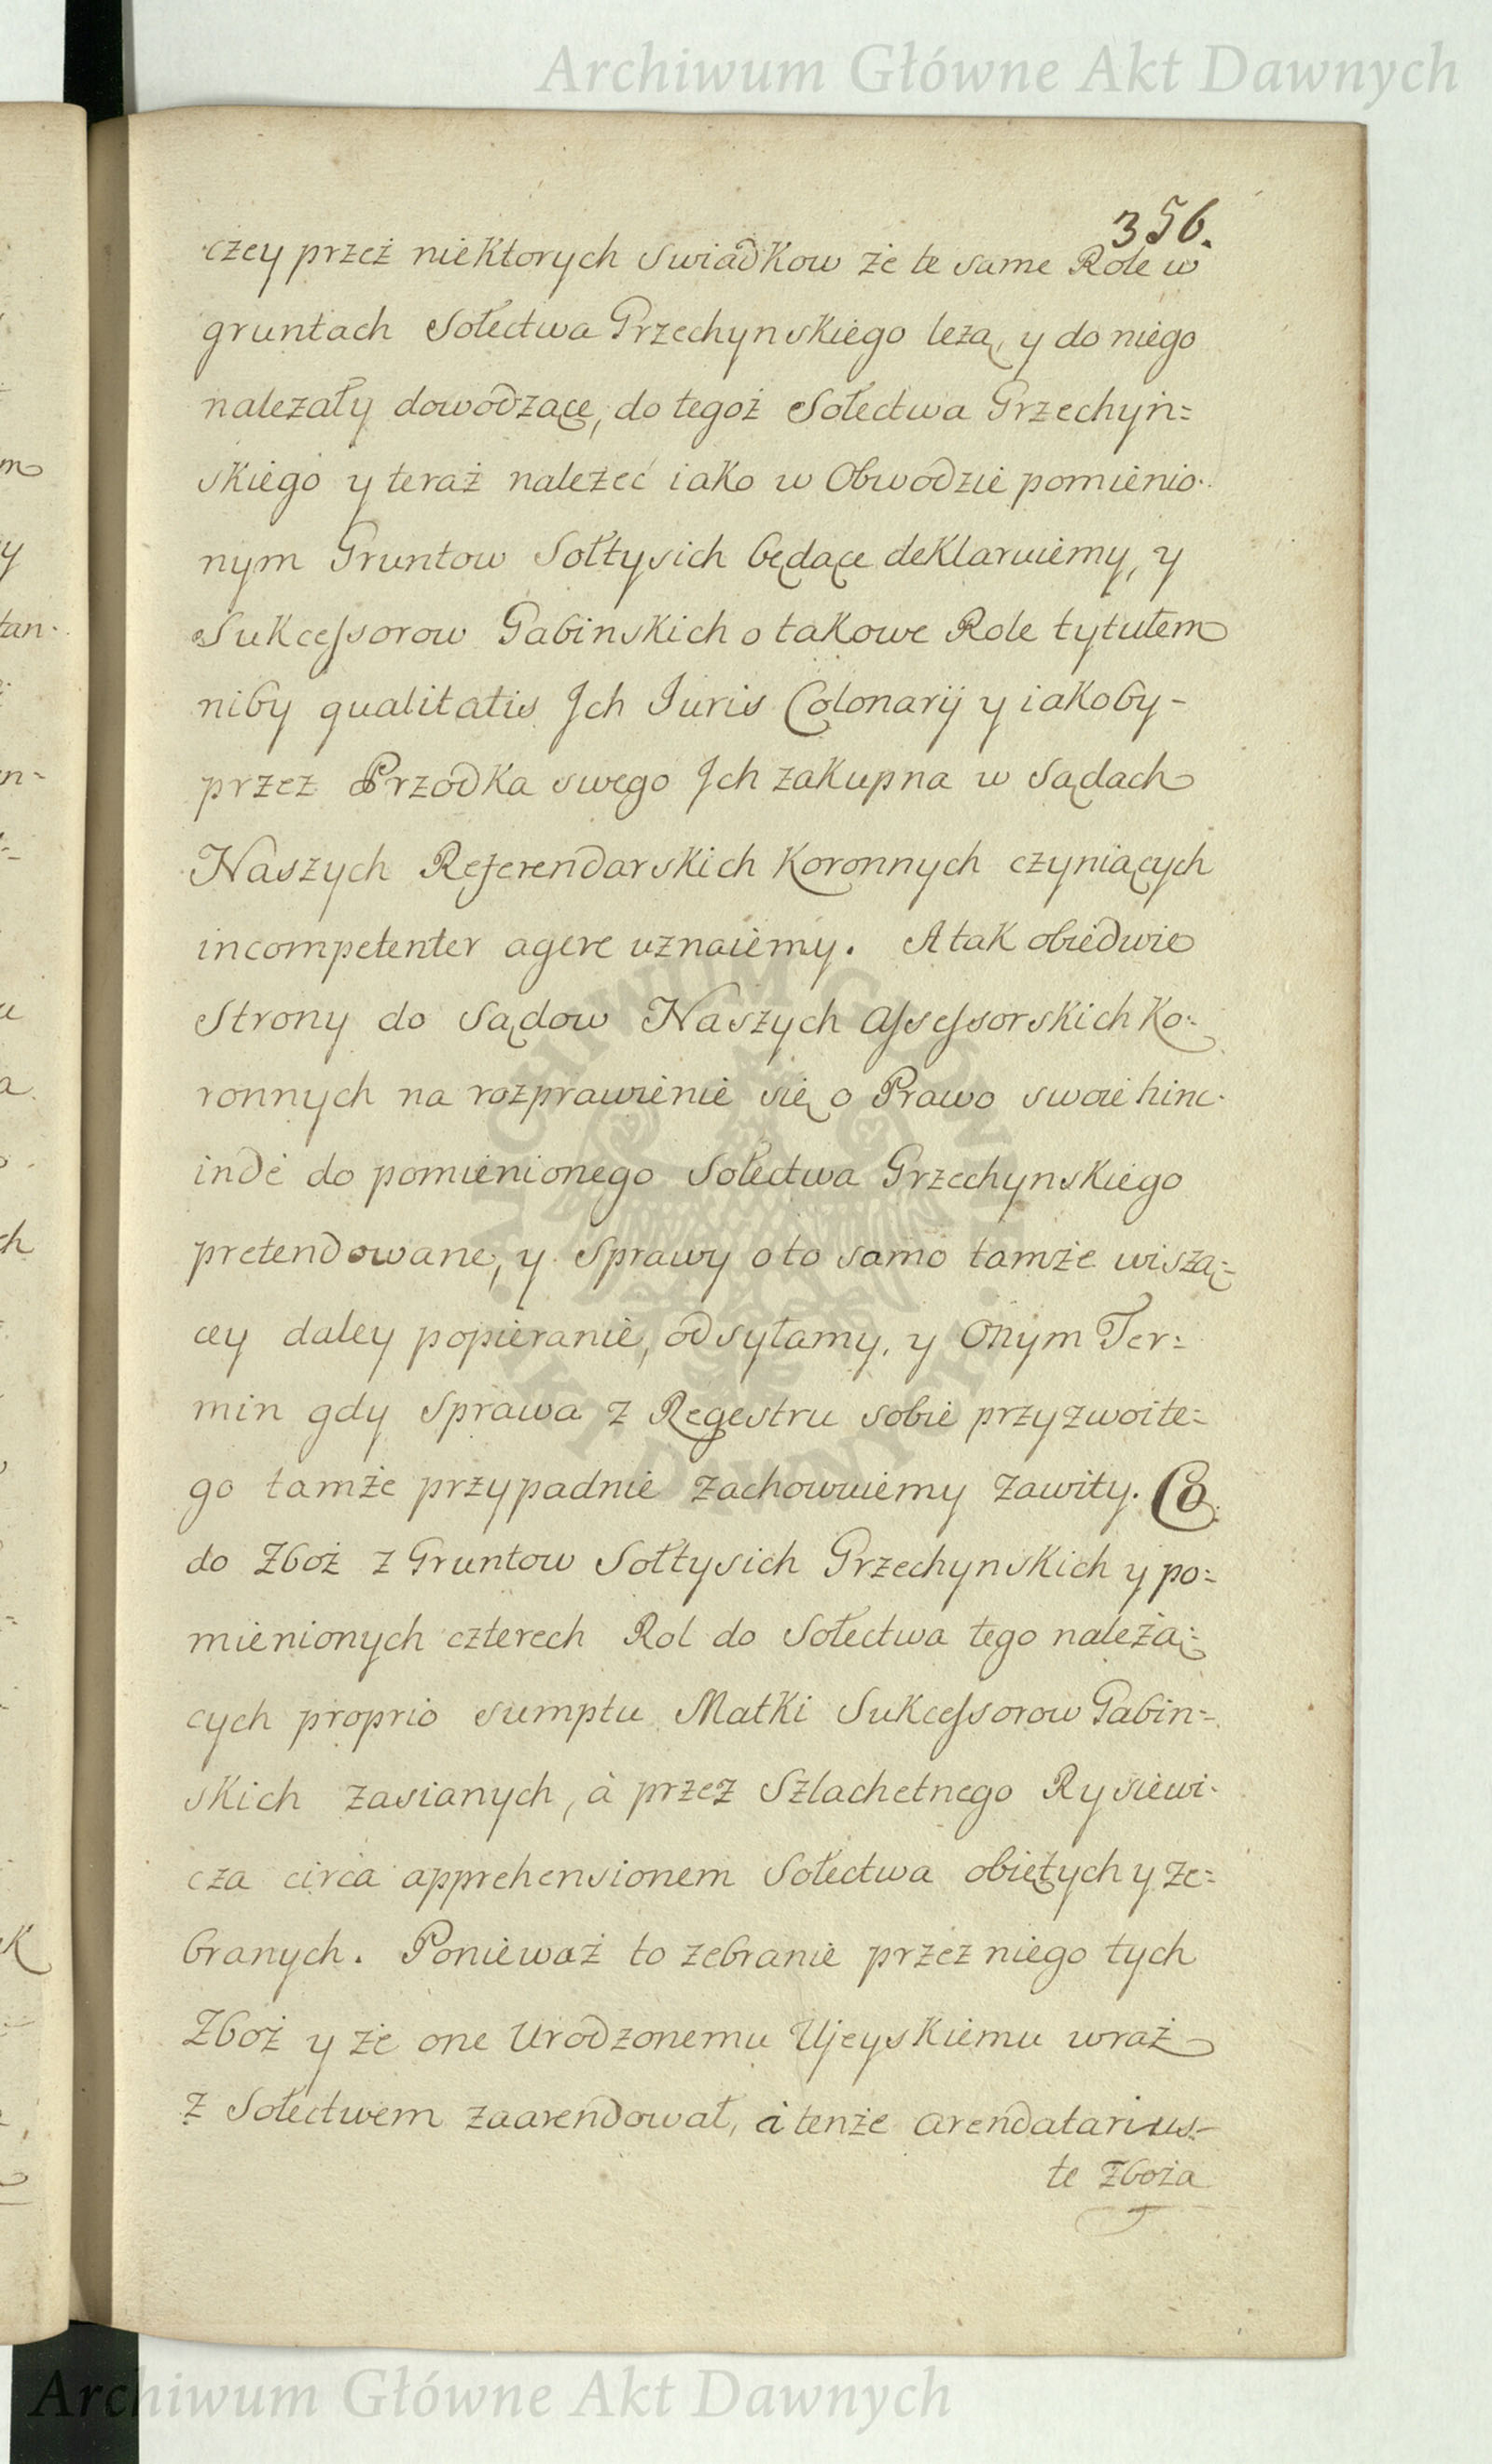 Archiwum Główne Akt Dawnych
356.
czey przeż niektorych swiadkow że te same Role w
gruntach Sołectwa Grzechynskiego leżą, y do niego
należały dowodzące, do tegoż Sołectwa Grzechyn=
skiego y teraż należeć iako w Obwodzie pomienio-
nym Gruntow Sołtysich będące deklaruiemy, y
Sukcessorow Gabinskich o takowe Role tytułem
niby qualitatis Ich Iuris Colonarij y iakoby-
przez Przodka swego Ich zakupna w Sądach
Naszych Referendarskich Koronnych czyniących
incompetenter agere uznaiemy. A tak obiedwie
Strony do Sądow Naszych Assessorskich Ko-
ronnych na rozprawienie się o Prawo swoie hinc-
inde do pomienionego Sołectwa Grzechynskiego
pretendowane, y Sprawy o to samo tamże wiszą=
cey daley popieranie, odsyłamy, y Onym Ter=
min gdy Sprawa z Regestru sobie przyzwoite=
go tamże przypadnie zachowuiemy zawity. Co
do Zboż z Gruntow Sołtysich Grzechynskich y po=
mienionych czterech Rol do Sołectwa tego należą=
cych proprio sumptu Matki Sukcessorow Gabin=
skich zasianych, à przez Szlachetnego Rysiewi-
cza circa apprehensionem Sołectwa obiętych y ze=
branych. Ponieważ to zebranie przez niego tych
Zboż y że one Urodzonemu Ujeyskiemu wraż
z Sołectwem zaarendował, à tenże arendatarius-
te Zboża
ARCHIWUM GŁÓWNE · AKT DAWNYCH ·
Archiwum Główne Akt Dawnych